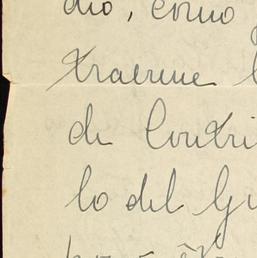 dio, como
traerme
de Contri
lo del Gu